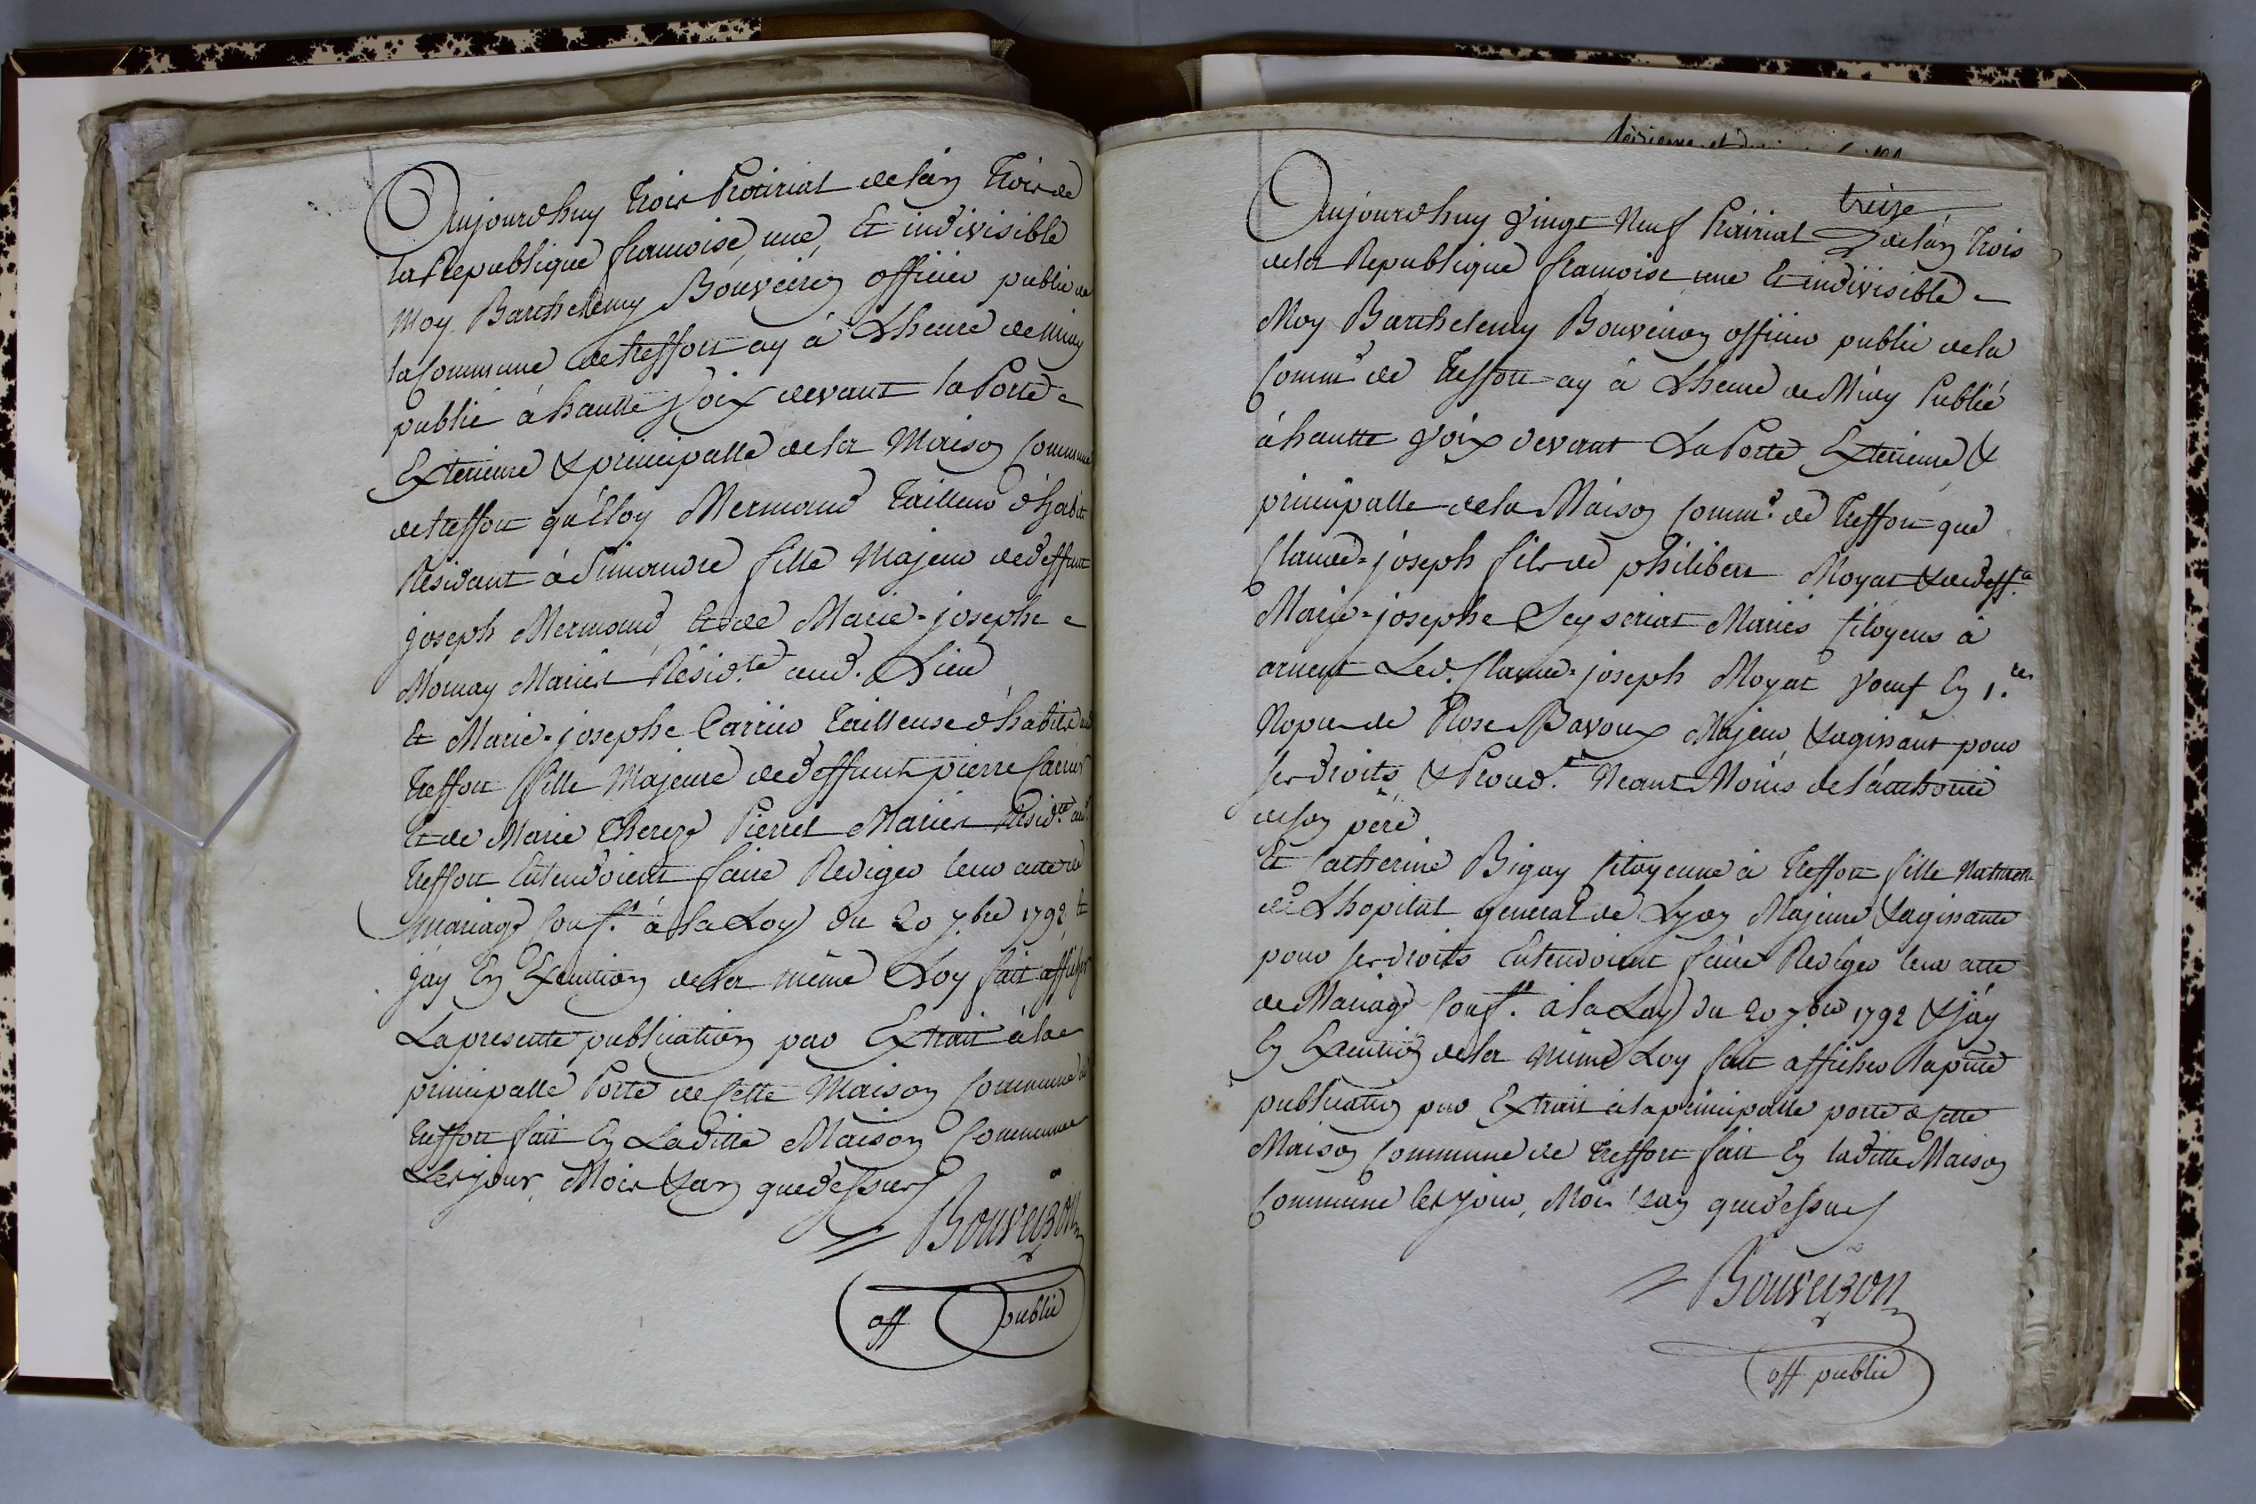 Aujourdhuy trois Prairial de lan trois de
la Republique francoise, une, Et indivisible
Moy Barthelemy Bouveiron officier public de
la Commune de treffort ay à Lheure de Miuy
publié à hautte Voix devant la Porte
Exterieure & principalle de la Maison Commune
de treffort qu'Eloy Mermand Tailleur d'habit
Residant à Simandre fille Majeur de deffunt
joseph Mermand Et de Marie-josephe
Mornay Mariés Résid.te aud. Lieu
Et Marie-josephe Carrier Tailleuse d'habits
Treffort fille Majeure de deffunt pierre Carrier
Et de Marie Thereze Pierrel Mariés Résid.te aud.
Treffort Entendoient faire Rediger leur acte de
Mariage Conf.t à la Loy du 20 7.bre 1792 Et
jay En Execution de la même Loy fait afficher
La presente publication par Extrait à la
principalle Porte de Cette Maison Commune de
treffort fait En Laditte Maison Commune
Les jour, Mois & an que dessus
Bouveiron
off public
treize
Aujourdhuy Vingt Neuf Prairial de lan trois
de la Republique francoise une Et indivisible
Moy Barthelemy Bouveiron officier public de la
Comm.e de Treffort ay à Lheure de Miuy Publié
à hautte Voix devant La Porte Exterieure &
principalle de la Maison Comm.e de Treffort que
Claude-joseph fils de philibert Moyat & de deff.te
Marie-josephe Seyseriat Mariés Citoyens à
arnent Led. Claude-joseph Moyat Voeuf En 1.res
Nopce de Rose Bavoux Majeur & agissant pour
ses droits, & Proced.t Neant Moins de l'authorité
de son pere
Et Catherine Bigay Citoyenne à Treffort fille Naturelle
de Lhopital general de Lyon Majeure & agissante
pour ses droits Entendoient faire Rediger leur acte
de Mariage Conf.t à la Loy du 20 7.bre 1792 & jay
En Execution de la même Loy fait afficher la pnte
publication par Extrait à la principalle porte de Cette
Maison Commune de Treffort fait En laditte Maison
Commune les jour, Mois & an que dessus
Bouveiron
off public